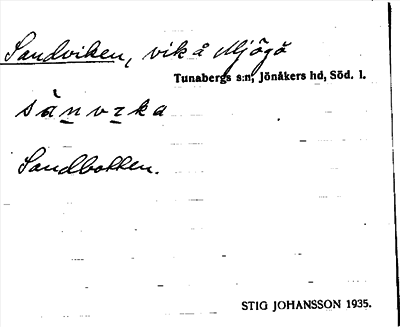 Sandviken, vik å Mjögö
Tunabergs s:n, Jönåkers hd, Söd. l.
sànvıka
Sandbotten.
STIG JOHANSSON 1935.